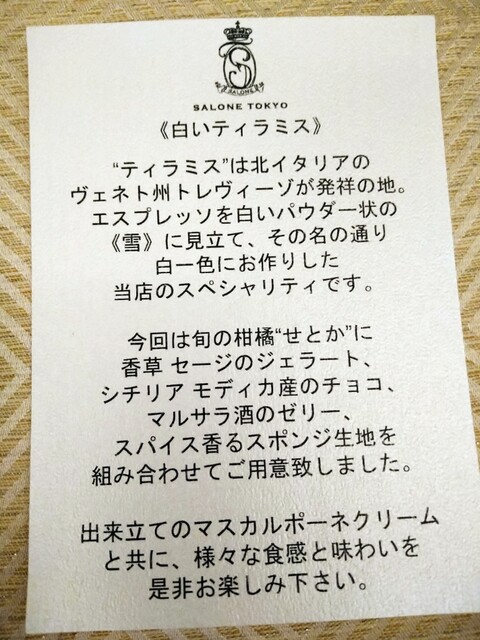 SALONE
SALONE TOKYO
《白いティラミス》
“ティラミス”は北イタリアの
ヴェネト州トレヴィーゾが発祥の地。
エスプレッソを白いパウダー状の
《雪》に見立て、その名の通り
白一色にお作りした
当店のスペシャリティです。
今回は旬の柑橘“せとか”に
香草 セージのジェラート、
シチリア モディカ産のチョコ、
マルサラ酒のゼリー、
スパイス香るスポンジ生地を
組み合わせてご用意致しました。
出来立てのマスカルポーネクリーム
と共に、様々な食感と味わいを
是非お楽しみ下さい。